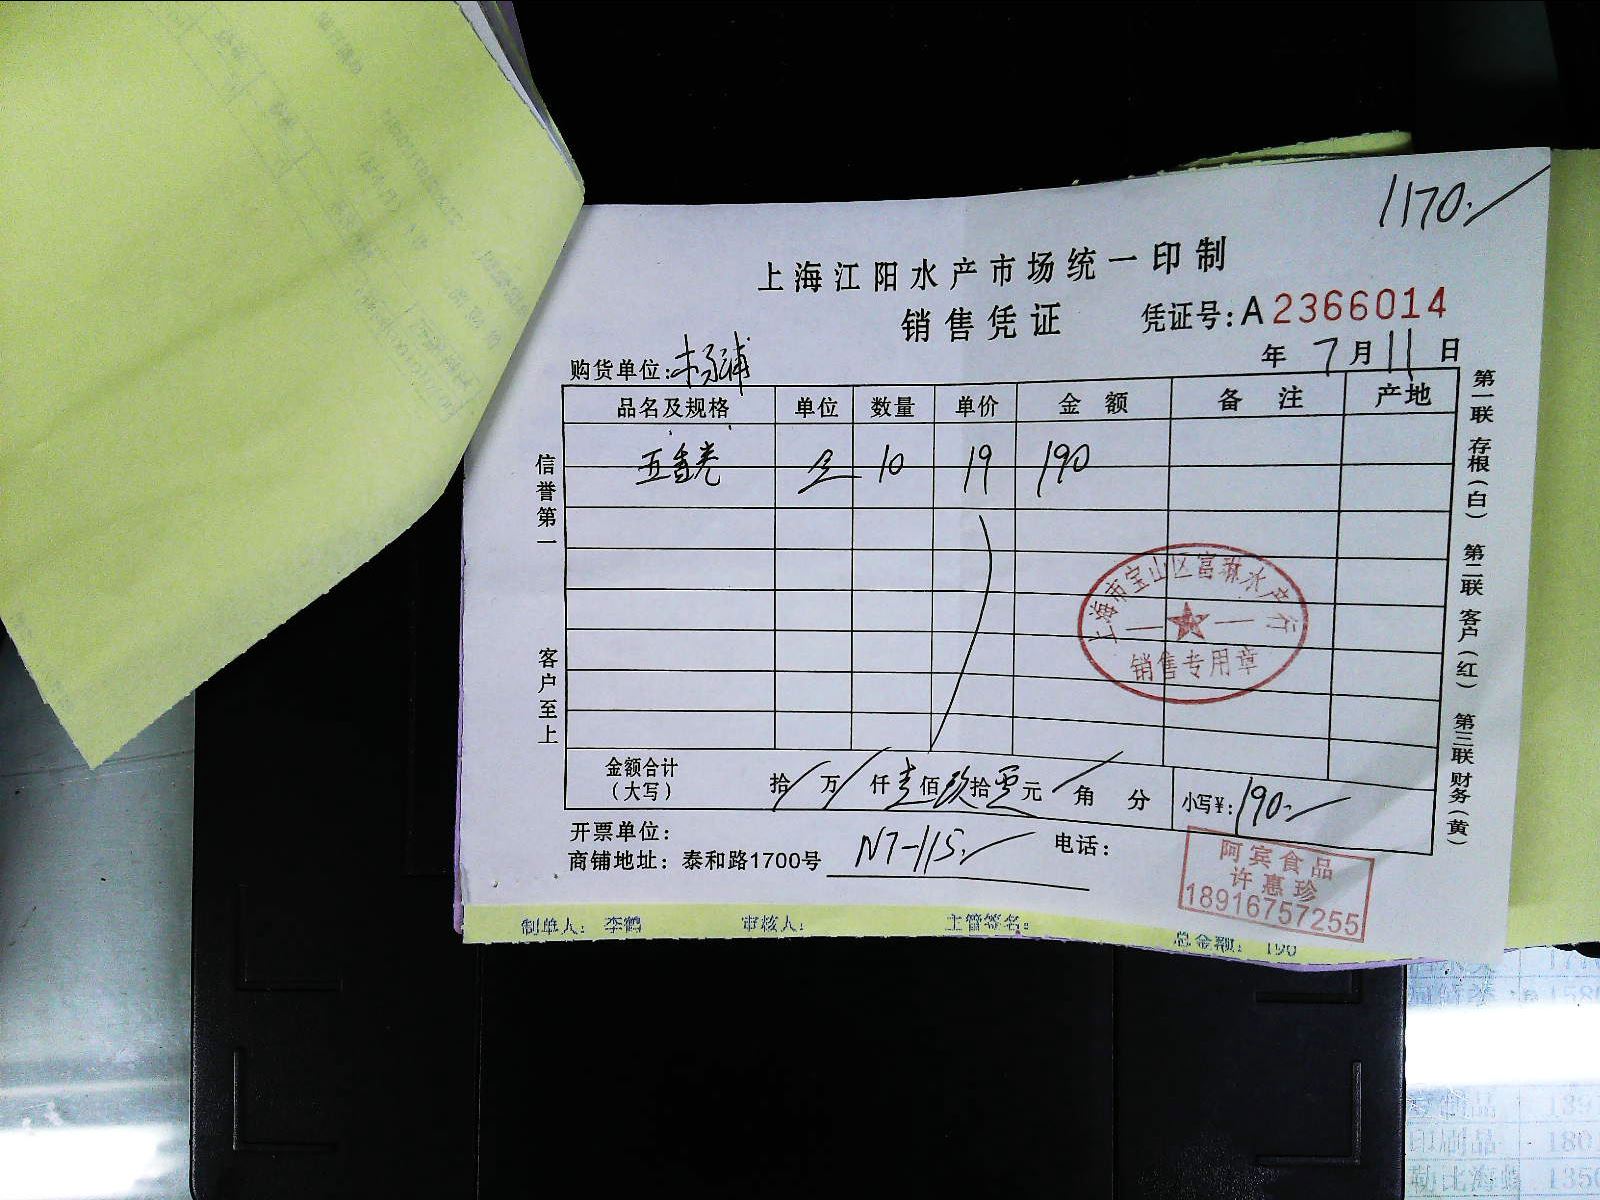 1170.
上海江阳水产市场统一印制
销售凭证 凭证号:A2366014
年 7月11日
购货单位:杨浦
品名及规格 单位 数量 单价 金额 备注 产地
五香壳 10 19 190
信誉第一
客户至上
第一联 存根(白) 第二联 客户(红) 第三联 财务(黄)
上海市宝山区富琳水产行
销售专用章
金额合计(大写) 拾 万 仟壹佰玖拾零元 角 分 小写¥:190.
开票单位:
商铺地址:泰和路1700号 N7-115. 电话:
阿宾食品
许惠珍
18916757255
制单人:李鹤 审核人: 主管签名: 总金额:190
豆制品 139
印刷品 1801
勒比海 1350